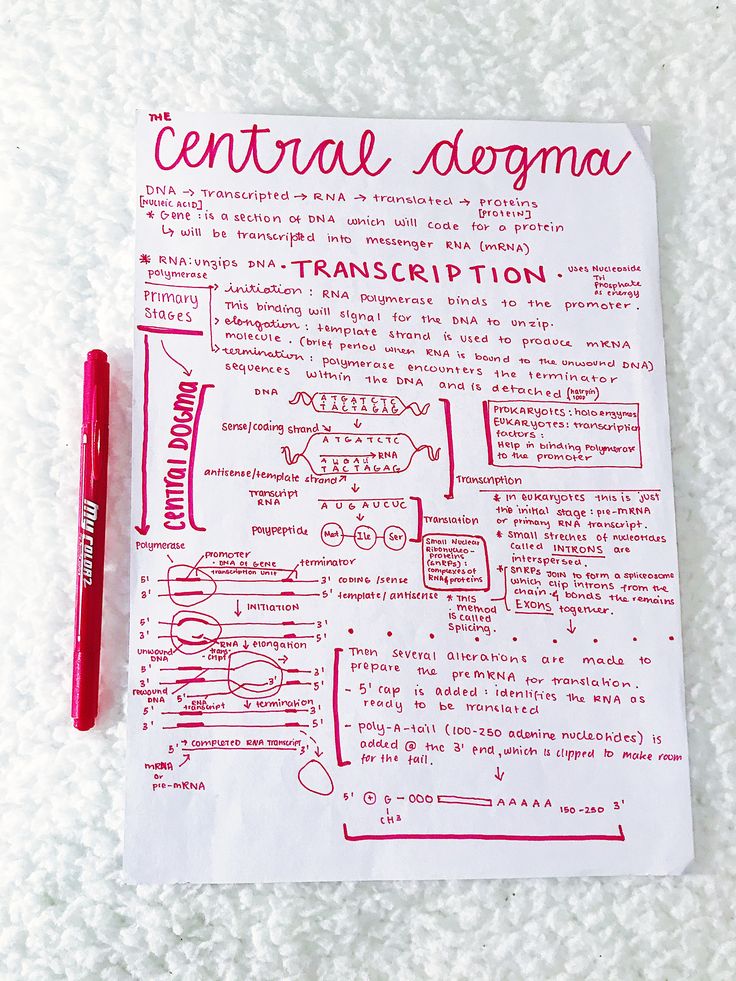 THE
Central dogma
DNA → Transcripted → RNA → translated → proteins
[NUCLEIC ACID] [PROTEIN]
* Gene : is a section of DNA which will code for a protein
↳ will be transcripted into messenger RNA (mRNA)
* RNA: unzips DNA
polymerase
• TRANSCRIPTION •
uses Nucleoside
Tri
Phosphate
as energy
Primary
Stages
→ initiation : RNA polymerase binds to the promoter.
This binding will signal for the DNA to unzip.
→ elongation : template strand is used to produce mRNA
molecule. (brief period when RNA is bound to the unwound DNA)
→ termination : polymerase encounters the terminator
sequences within the DNA and is detached (hairpin loop)
CENTRAL DOGMA
DNA
ATGATCTC
TACTAGAG
sense/coding strand
ATGATCTC
AUGAU → RNA
TACTAGAG
antisense/template strand
Transcription
transcript
RNA
AUGAUCUC
Translation
Polypeptide
Met Ile Ser
PROKARYOTES : holoenzymes
EUKARYOTES: transcription
factors :
Help in binding Polymerase
to the promoter
* IN EUKARYOTES THIS IS JUST
the initial stage : pre-mRNA
or primary RNA transcript.
* Small streches of nucleotides
called INTRONS are
interspersed.
* SNRPS JOIN to form a spliceosome
which clip introns from the
chain & bonds the remains
EXONS together.
Small Nuclear
Ribonucleo-
proteins
(snRPs) :
complexes of
RNA & proteins
* THIS
method
is called
Splicing.
polymerase
promoter
• DNA OF GENE
transcription unit
terminator
5' 3' CODING / sense
3' 5' template / antisense
↓ INITIATION
5' 3'
3' 5'
unwound
DNA
RNA
trans-
cript
↓ elongation
5' 3'
3' 3' 5'
5'
rewound
DNA
RNA
transcript
↓ termination
5' 3'
3' 5'
5' → COMPLETED RNA TRANSCRIPT 3'
mRNA
or
pre-mRNA
Then several alterations are made to
prepare the premRNA for translation.
- 5' cap is added : identifies the RNA as
ready to be translated
- poly-A-tail (100-250 adenine nucleotides) is
added @ the 3' end, which is clipped to make room
for the tail.
5' + G - OOO AAAAA 150-250 3'
CH3
My COLOR2